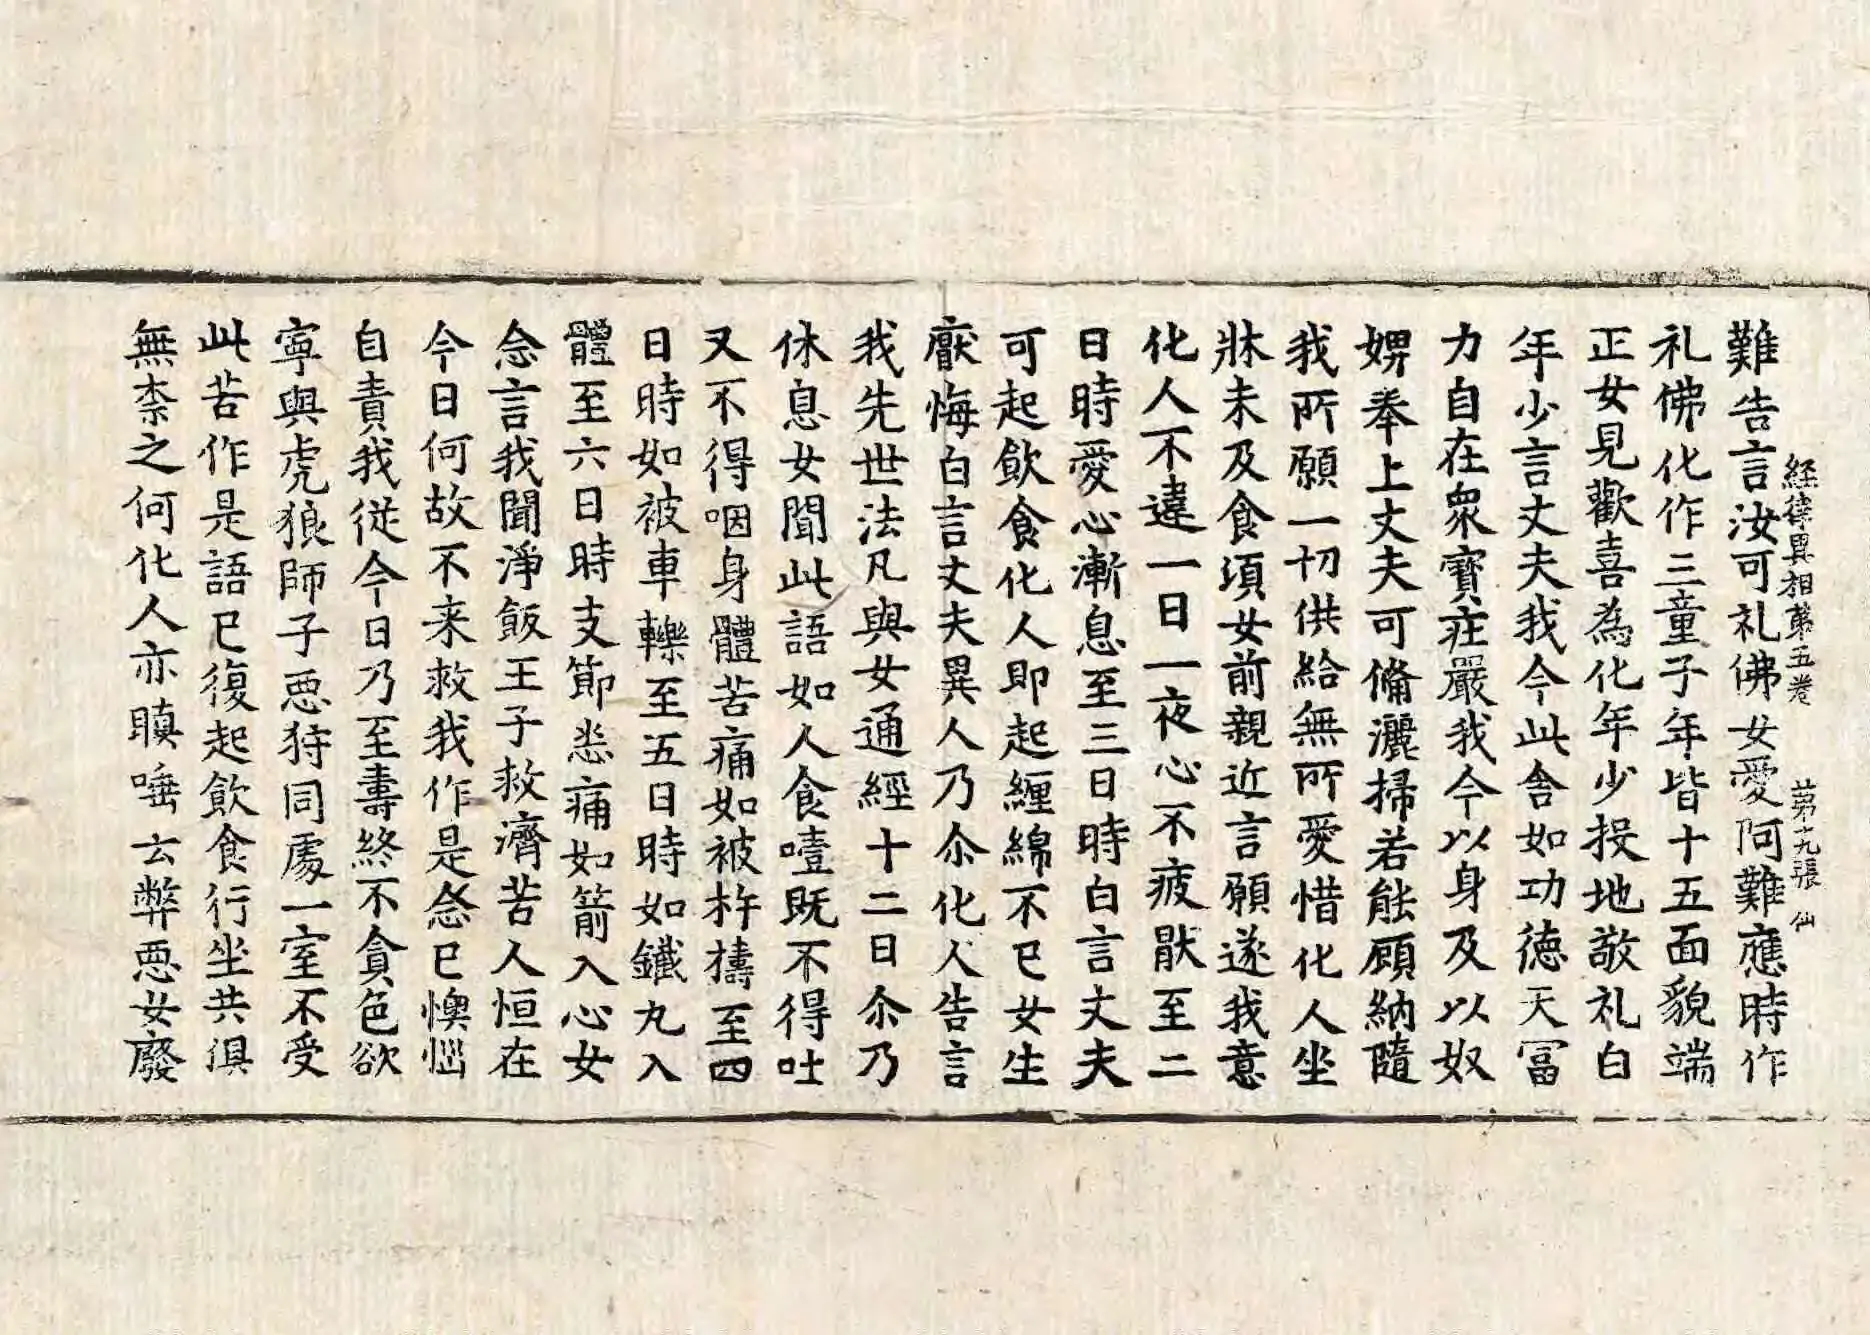 難告言汝可礼佛女愛阿難應時作
経律異相第五巻　第十九張　仙
礼佛化作三童子年皆十五面貌端
正女見歡喜為化年少投地敬礼白
年少言丈夫我今此舍如功德天冨
力自在衆寳疘嚴我今以身及以奴
婢奉上丈夫可俻灑掃若能顧納隨
我所願一切供給無所愛惜化人坐
牀未及食頃女前親近言願遂我意
化人不違一日一夜心不疲猒至二
日時愛心漸息至三日時白言丈夫
可起飲食化人即起纏綿不已女生
厭悔白言丈夫異人乃尒化人告言
我先世法凡與女通經十二日尒乃
休息女聞此語如人食噎既不得吐
又不得咽身體苦痛如被杵擣至四
日時如被車轢至五日時如鐵丸入
體至六日時支節悉痛如箭入心女
念言我聞淨飯王子救濟苦人恒在
今日何故不来救我作是念已懊惱
自責我従今日乃至壽終不貪色欲
寧與虎狼師子惡狩同處一室不受
此苦作是語已復起飲食行坐共俱
無柰之何化人亦瞋唾云弊惡女廢